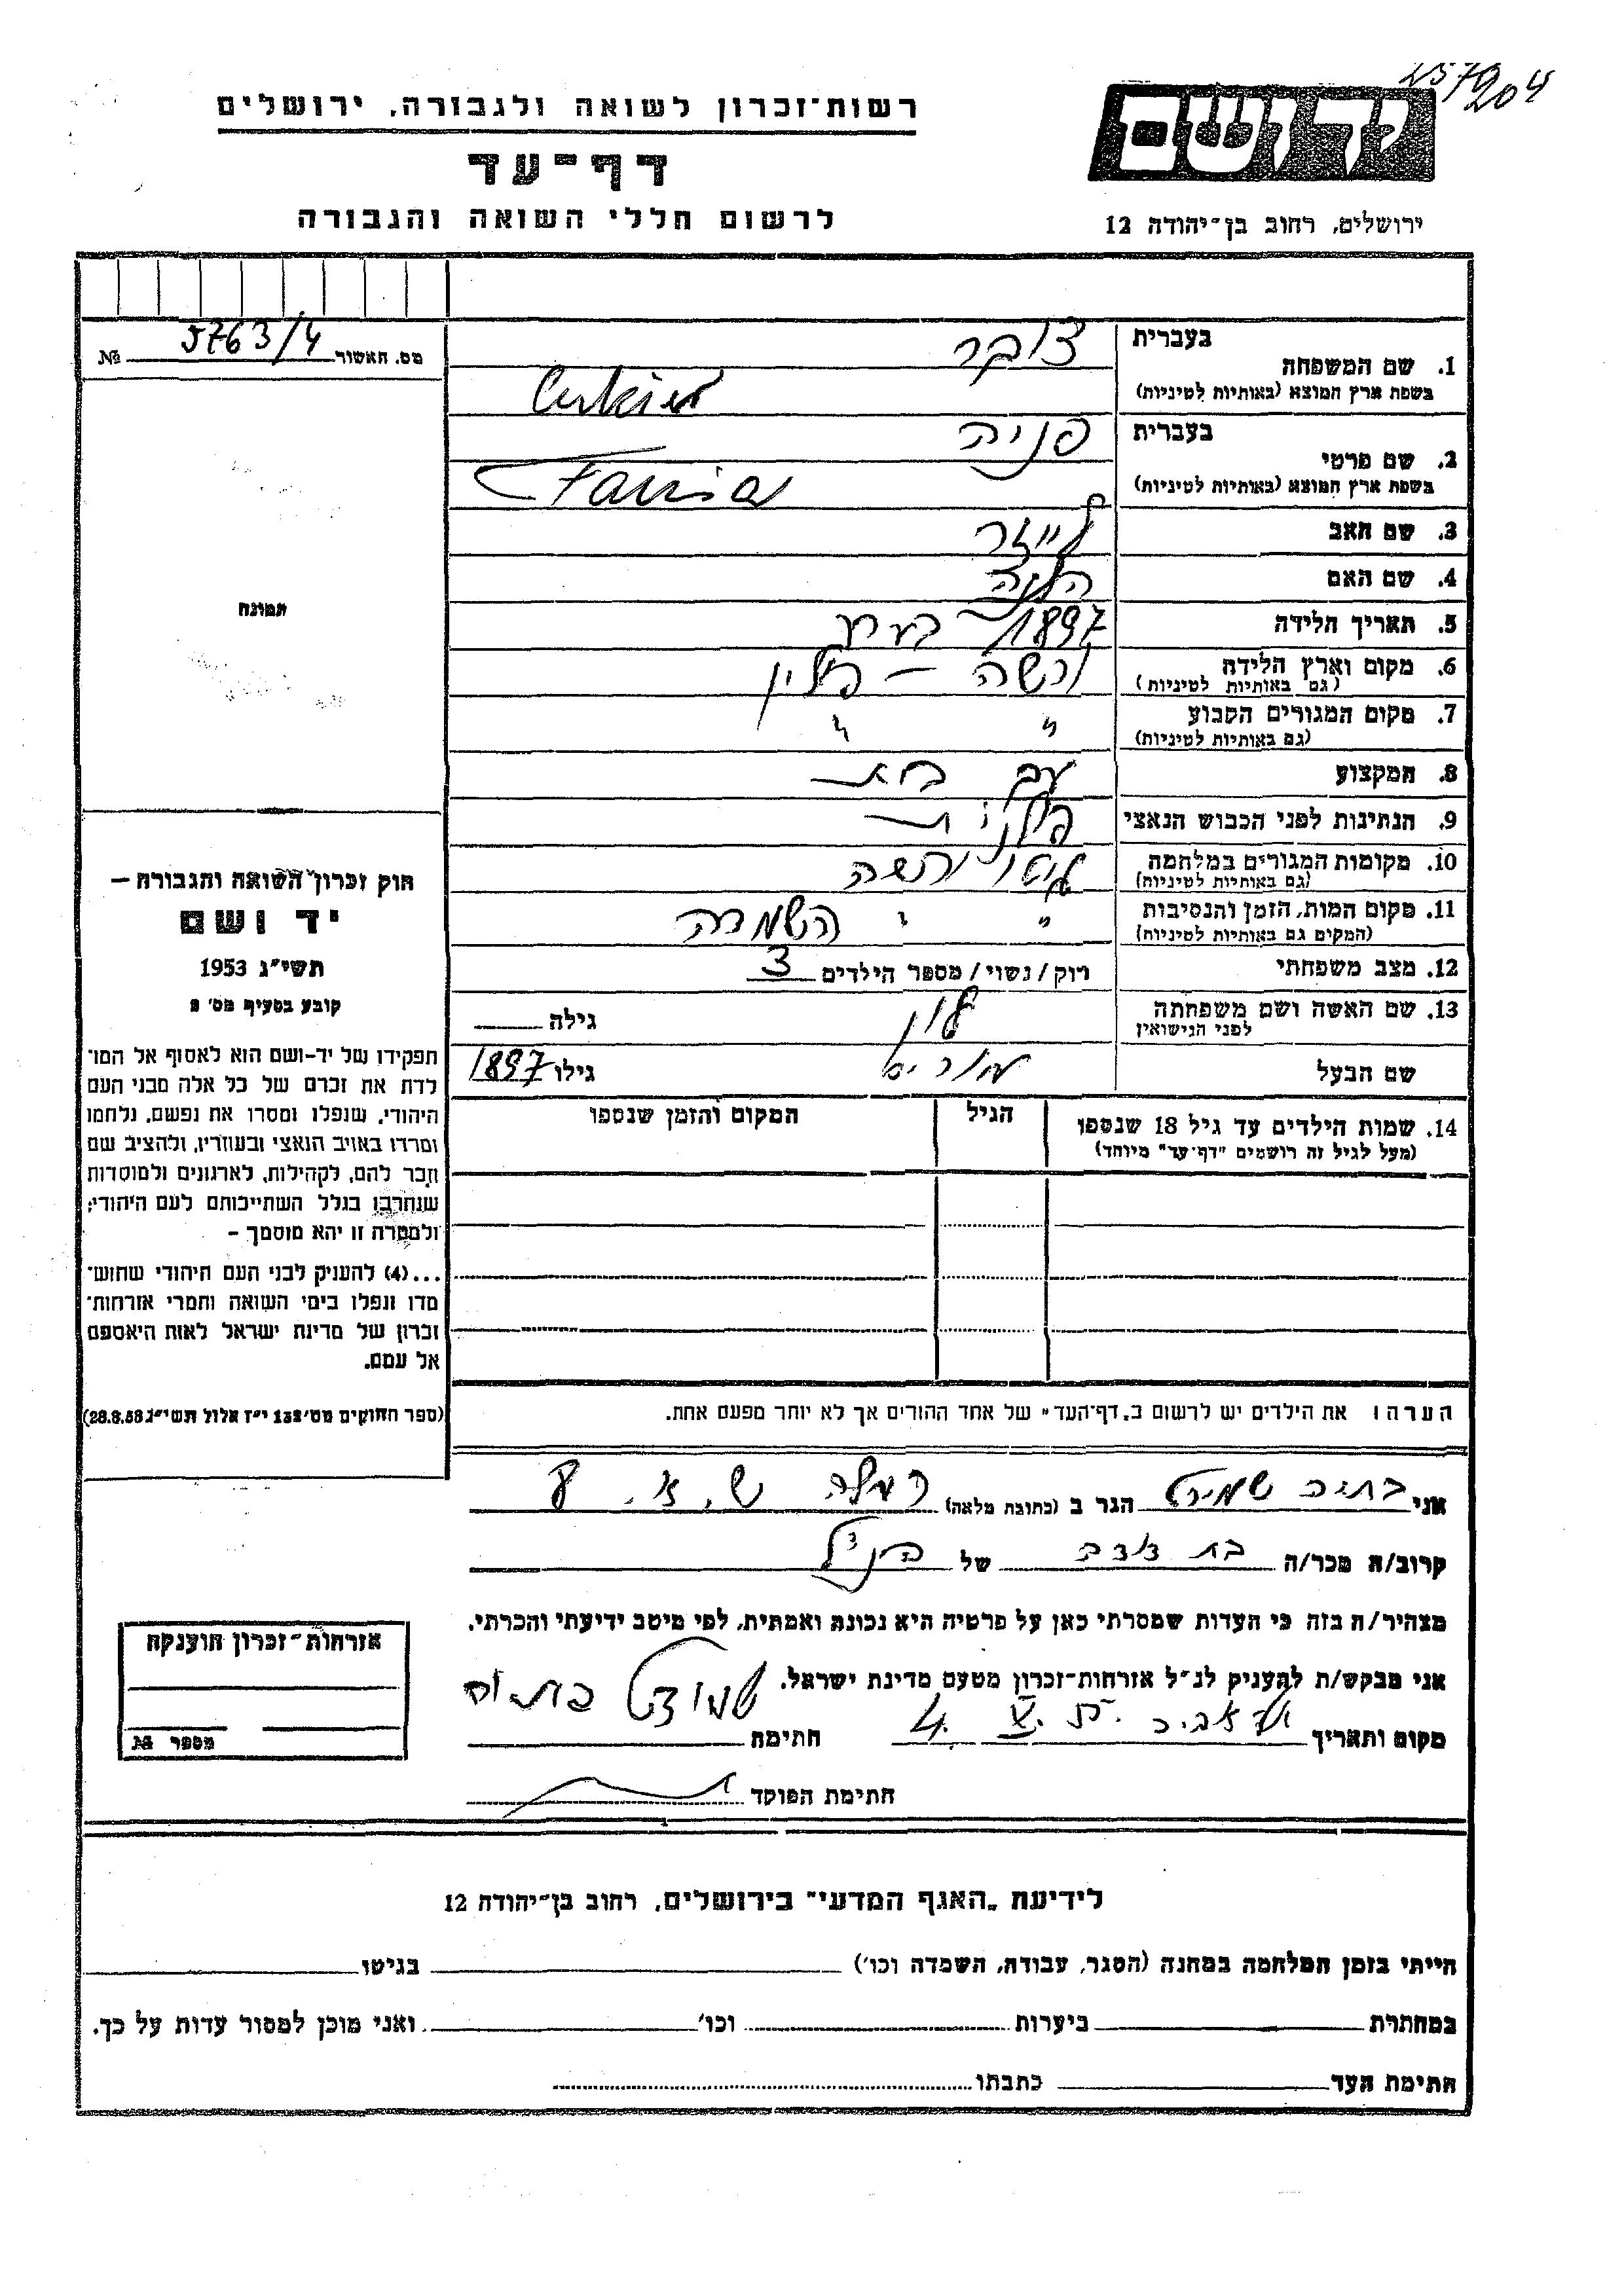 257204
רשות־זכרון לשואה ולגבורה, ירושלים
דף־עד
לרשום חללי השואה והגבורה
ידושם
ירושלים, רחוב בן־יהודה 12
מס. האשור 5763/4 №
בעברית צובר
1. שם המשפחה
בשפת ארץ המוצא (באותיות לטיניות)
בעברית פניה
2. שם פרטי
בשפת ארץ המוצא (באותיות לטיניות) Fania
3. שם האב לייזר
4. שם האם
5. תאריך הלידה 1897 בערך
6. מקום וארץ הלידה ורשה – פולין
(גם באותיות לטיניות)
7. מקום המגורים הקבוע " "
(גם באותיות לטיניות)
8. המקצוע עק. בית
9. הנתינות לפני הכבוש הנאצי פולנית
10. מקומות המגורים במלחמה גיטו ורשה
(גם באותיות לטיניות)
11. מקום המות, הזמן והנסיבות " " השמדה
(המקום גם באותיות לטיניות)
12. מצב משפחתי רוק/נשוי/מספר הילדים 3
13. שם האשה ושם משפחתה גילה
לפני הנישואין
שם הבעל מוריס גילו 1897
14. שמות הילדים עד גיל 18 שנספו הגיל המקום והזמן שנספו
(מעל לגיל זה רושמים "דף־עד" מיוחד)
הערה: את הילדים יש לרשום ב„דף־העד" של אחד ההורים אך לא יותר מפעם אחת.
תמונה
חוק זכרון השואה והגבורה –
יד ושם
תשי"ג 1953
קובע בסעיף מס' 2
תפקידו של יד־ושם הוא לאסוף אל המו־
לדת את זכרם של כל אלה מבני העם
היהודי, שנפלו ומסרו את נפשם, נלחמו
ומרדו באויב הנאצי ובעוזריו, ולהציב שם
וזכר להם, לקהילות, לארגונים ולמוסדות
שנחרבו בגלל השתייכותם לעם היהודי;
ולמטרה זו יהא מוסמך –
...(4) להעניק לבני העם היהודי שהוש־
מדו ונפלו בימי השואה והמרי אזרחות־
זכרון של מדינת ישראל לאות היאספם
אל עמם.
(ספר החוקים מס' 132 י"ז אלול תשי"ג 28.8.53)
אני בתיה הגר ב (כתובת מלאה) רמלה ש. א. 8
קרוב/ה מכר/ה בת דודה של הנ"ל
מצהיר/ה בזה כי העדות שמסרתי כאן על פרטיה היא נכונה ואמתית, לפי מיטב ידיעתי והכרתי.
אני מבקש/ת להעניק לנ"ל אזרחות־זכרון מטעם מדינת ישראל.
מקום ותאריך חתימה
חתימת הפוקד
אזרחות־זכרון הוענקה
מספר №
לידיעת „האגף המדעי" בירושלים, רחוב בן־יהודה 12
הייתי בזמן המלחמה במחנה (הסגר, עבודה, השמדה וכו') בגיטו
במחתרת ביערות וכו' ואני מוכן למסור עדות על כך.
חתימת העד כתבתו